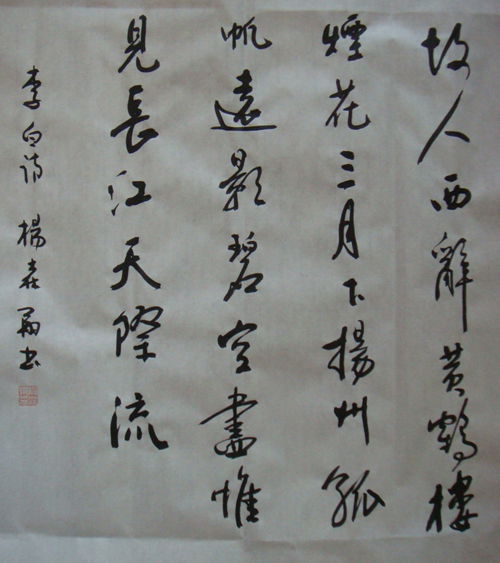 故人西辭黄鶴樓
煙花三月下揚州孤
帆遠影碧空盡惟
見長江天際流
李白诗 楊森 书